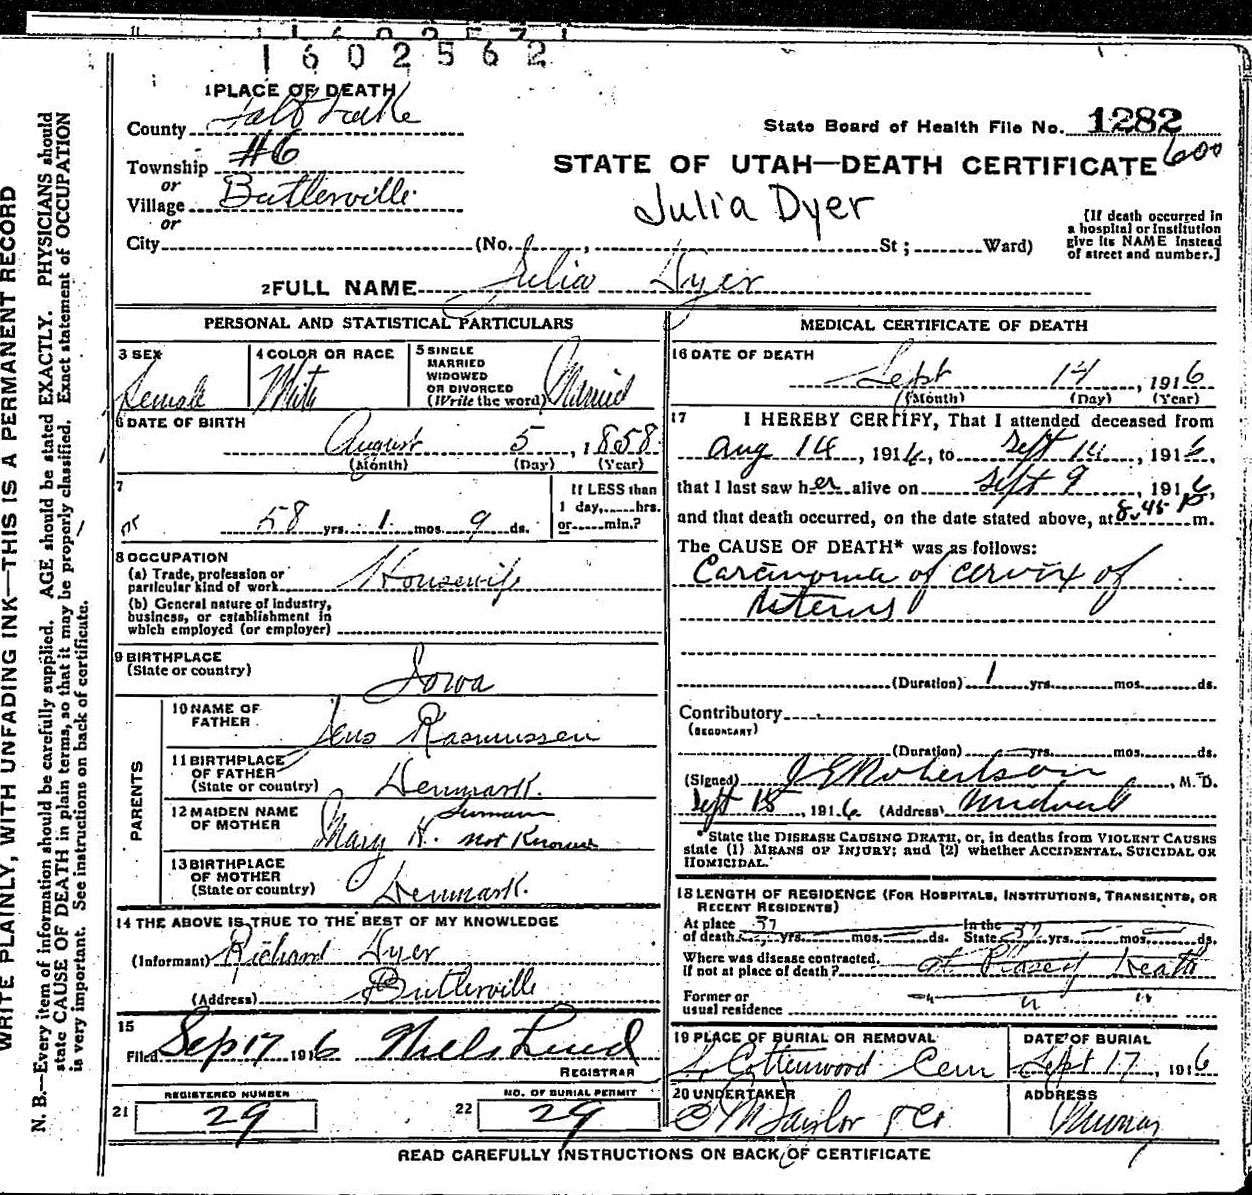 1602562
1 PLACE OF DEATH
County Salt Lake
State Board of Health File No. 1282
Township #6
600
STATE OF UTAH—DEATH CERTIFICATE
or
Village Butlerville
Julia Dyer
or
City (No. , St ; Ward)
[If death occurred in
a hospital or institution
give its NAME instead
of street and number.]
2 FULL NAME Julia Dyer
PERSONAL AND STATISTICAL PARTICULARS
3 SEX
Female
4 COLOR OR RACE
White
5 SINGLE
MARRIED
WIDOWED
OR DIVORCED
(Write the word) Married
6 DATE OF BIRTH
August 5, 1858
(Month) (Day) (Year)
7
58 yrs. 1 mos. 9 ds.
If LESS than
1 day, hrs.
or min.?
8 OCCUPATION
(a) Trade, profession or
particular kind of work Housewife
(b) General nature of industry,
business, or establishment in
which employed (or employer)
9 BIRTHPLACE
(State or country) Iowa
PARENTS
10 NAME OF
FATHER Jens Rasmussen
11 BIRTHPLACE
OF FATHER
(State or country) Denmark.
12 MAIDEN NAME
OF MOTHER Mary H. not Known
13 BIRTHPLACE
OF MOTHER
(State or country) Denmark.
14 THE ABOVE IS TRUE TO THE BEST OF MY KNOWLEDGE
(Informant) Richard Dyer
(Address) Butlerville
15
Filed Sep 17 1916 Niels Lind
REGISTRAR
REGISTERED NUMBER
21 29
NO. OF BURIAL PERMIT
22 29
MEDICAL CERTIFICATE OF DEATH
16 DATE OF DEATH
Sept 14, 1916
(Month) (Day) (Year)
17 I HEREBY CERTIFY, That I attended deceased from
Aug 14, 1916, to Sept 14, 1916,
that I last saw her alive on Sept 9, 1916,
and that death occurred, on the date stated above, at 8.45 P m.
The CAUSE OF DEATH* was as follows:
Carcinoma of cervix of
uterus
(Duration) 1 yrs. mos. ds.
Contributory
(SECONDARY)
(Duration) yrs. mos. ds.
(Signed) J E Robertson, M. D.
Sept 15, 1916 (Address) Midvale
*State the DISEASE CAUSING DEATH, or, in deaths from VIOLENT CAUSES
state (1) MEANS OF INJURY; and (2) whether ACCIDENTAL, SUICIDAL OR
HOMICIDAL.
18 LENGTH OF RESIDENCE (FOR HOSPITALS, INSTITUTIONS, TRANSIENTS, OR
RECENT RESIDENTS)
At place 37 In the 37
of death yrs. mos. ds. State yrs. mos. ds.
Where was disease contracted,
if not at place of death? at Place of Death
Former or
usual residence " " "
19 PLACE OF BURIAL OR REMOVAL
Cottenwood Cem
DATE OF BURIAL
Sept 17, 1916
20 UNDERTAKER
M Taylor & Co
ADDRESS
Murray
READ CAREFULLY INSTRUCTIONS ON BACK OF CERTIFICATE
WRITE PLAINLY, WITH UNFADING INK—THIS IS A PERMANENT RECORD
N. B.—Every item of information should be carefully supplied. AGE should be stated EXACTLY. PHYSICIANS should
state CAUSE OF DEATH in plain terms, so that it may be properly classified. Exact statement of OCCUPATION
is very important. See instructions on back of certificate.